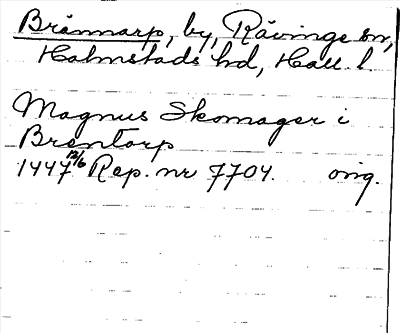 Brännarp, by, Rävinge sn,
Halmstads hd, Hall. l.
Magnus Skomager i
Brentorp
1447 13/6 Rep. nr 7704. orig.